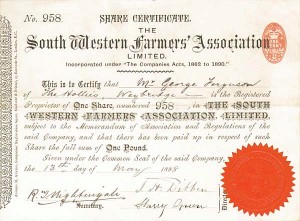 No. 958 SHARE CERTIFICATE.
THE
SOUTH WESTERN FARMERS' ASSOCIATION
LIMITED.
Incorporated under "The Companies Acts, 1862 to 1890."
This is to Certify that Mr George Ferguson
of The Hollies Weybridge is the Registered
Proprietor of ONE SHARE, numbered 958, in THE SOUTH
WESTERN FARMERS' ASSOCIATION, LIMITED,
subject to the Memorandum of Association and Regulations of the
said Company, and that there has been paid up in respect of such
Share the full sum of ONE POUND.
Given under the Common Seal of the said Company,
the 13th day of May 1898
R. T. Nightingale
Secretary.
J. H. Dibben
Harry Green